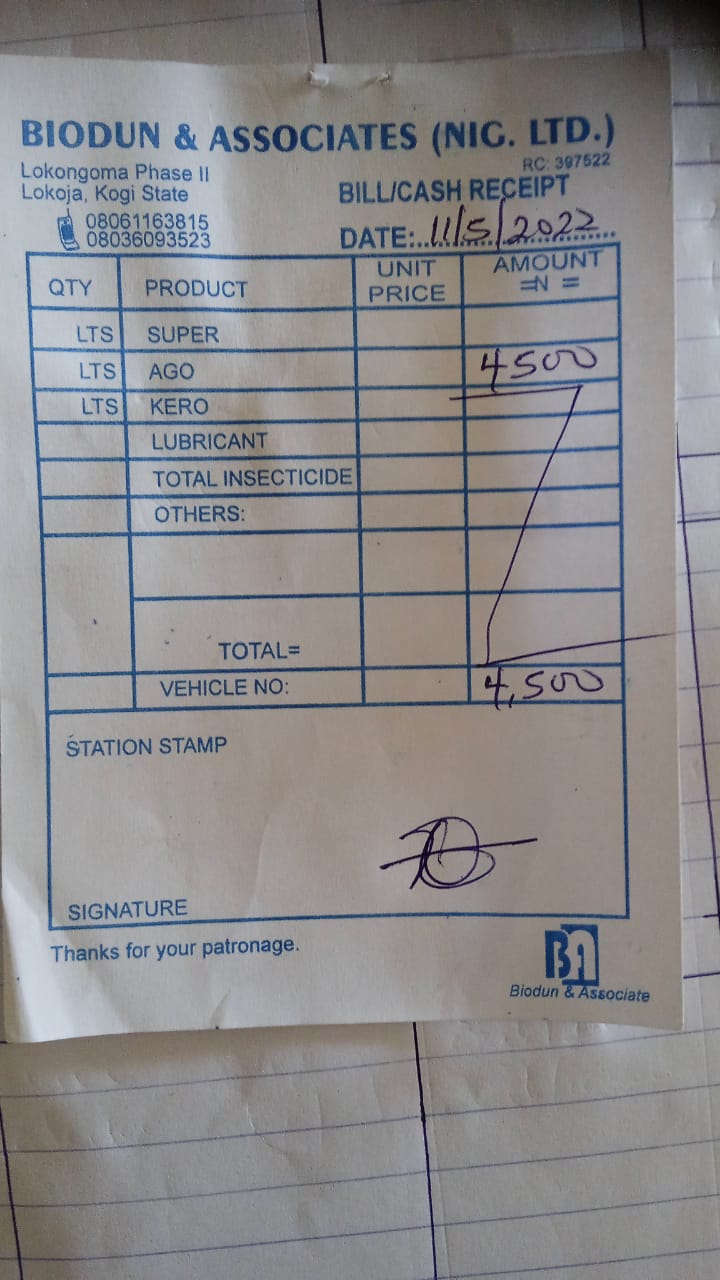 BIODUN & ASSOCIATES (NIG. LTD.)
RC: 397522
Lokongoma Phase II
Lokoja, Kogi State
08061163815
08036093523
BILL/CASH RECEIPT
DATE:..11/5/2022
QTY PRODUCT UNIT PRICE AMOUNT =N=
LTS SUPER
LTS AGO 4500
LTS KERO
LUBRICANT
TOTAL INSECTICIDE
OTHERS:
TOTAL=
VEHICLE NO: 4,500
STATION STAMP
SIGNATURE
Thanks for your patronage.
BA
Biodun & Associate